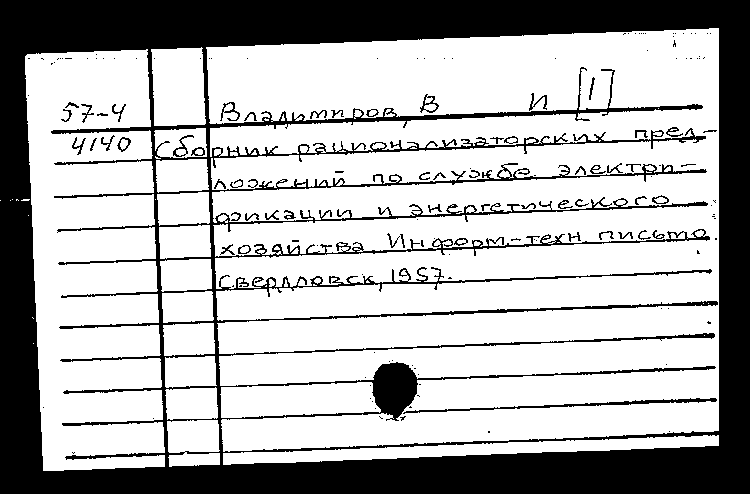 57-4 Владимиров, В И [1]
4140 Сборник рационализаторских пред-
ложений по службе электри-
фикации и энергетического
хозяйства. Информ-техн. письмо.
Свердловск, 1957.